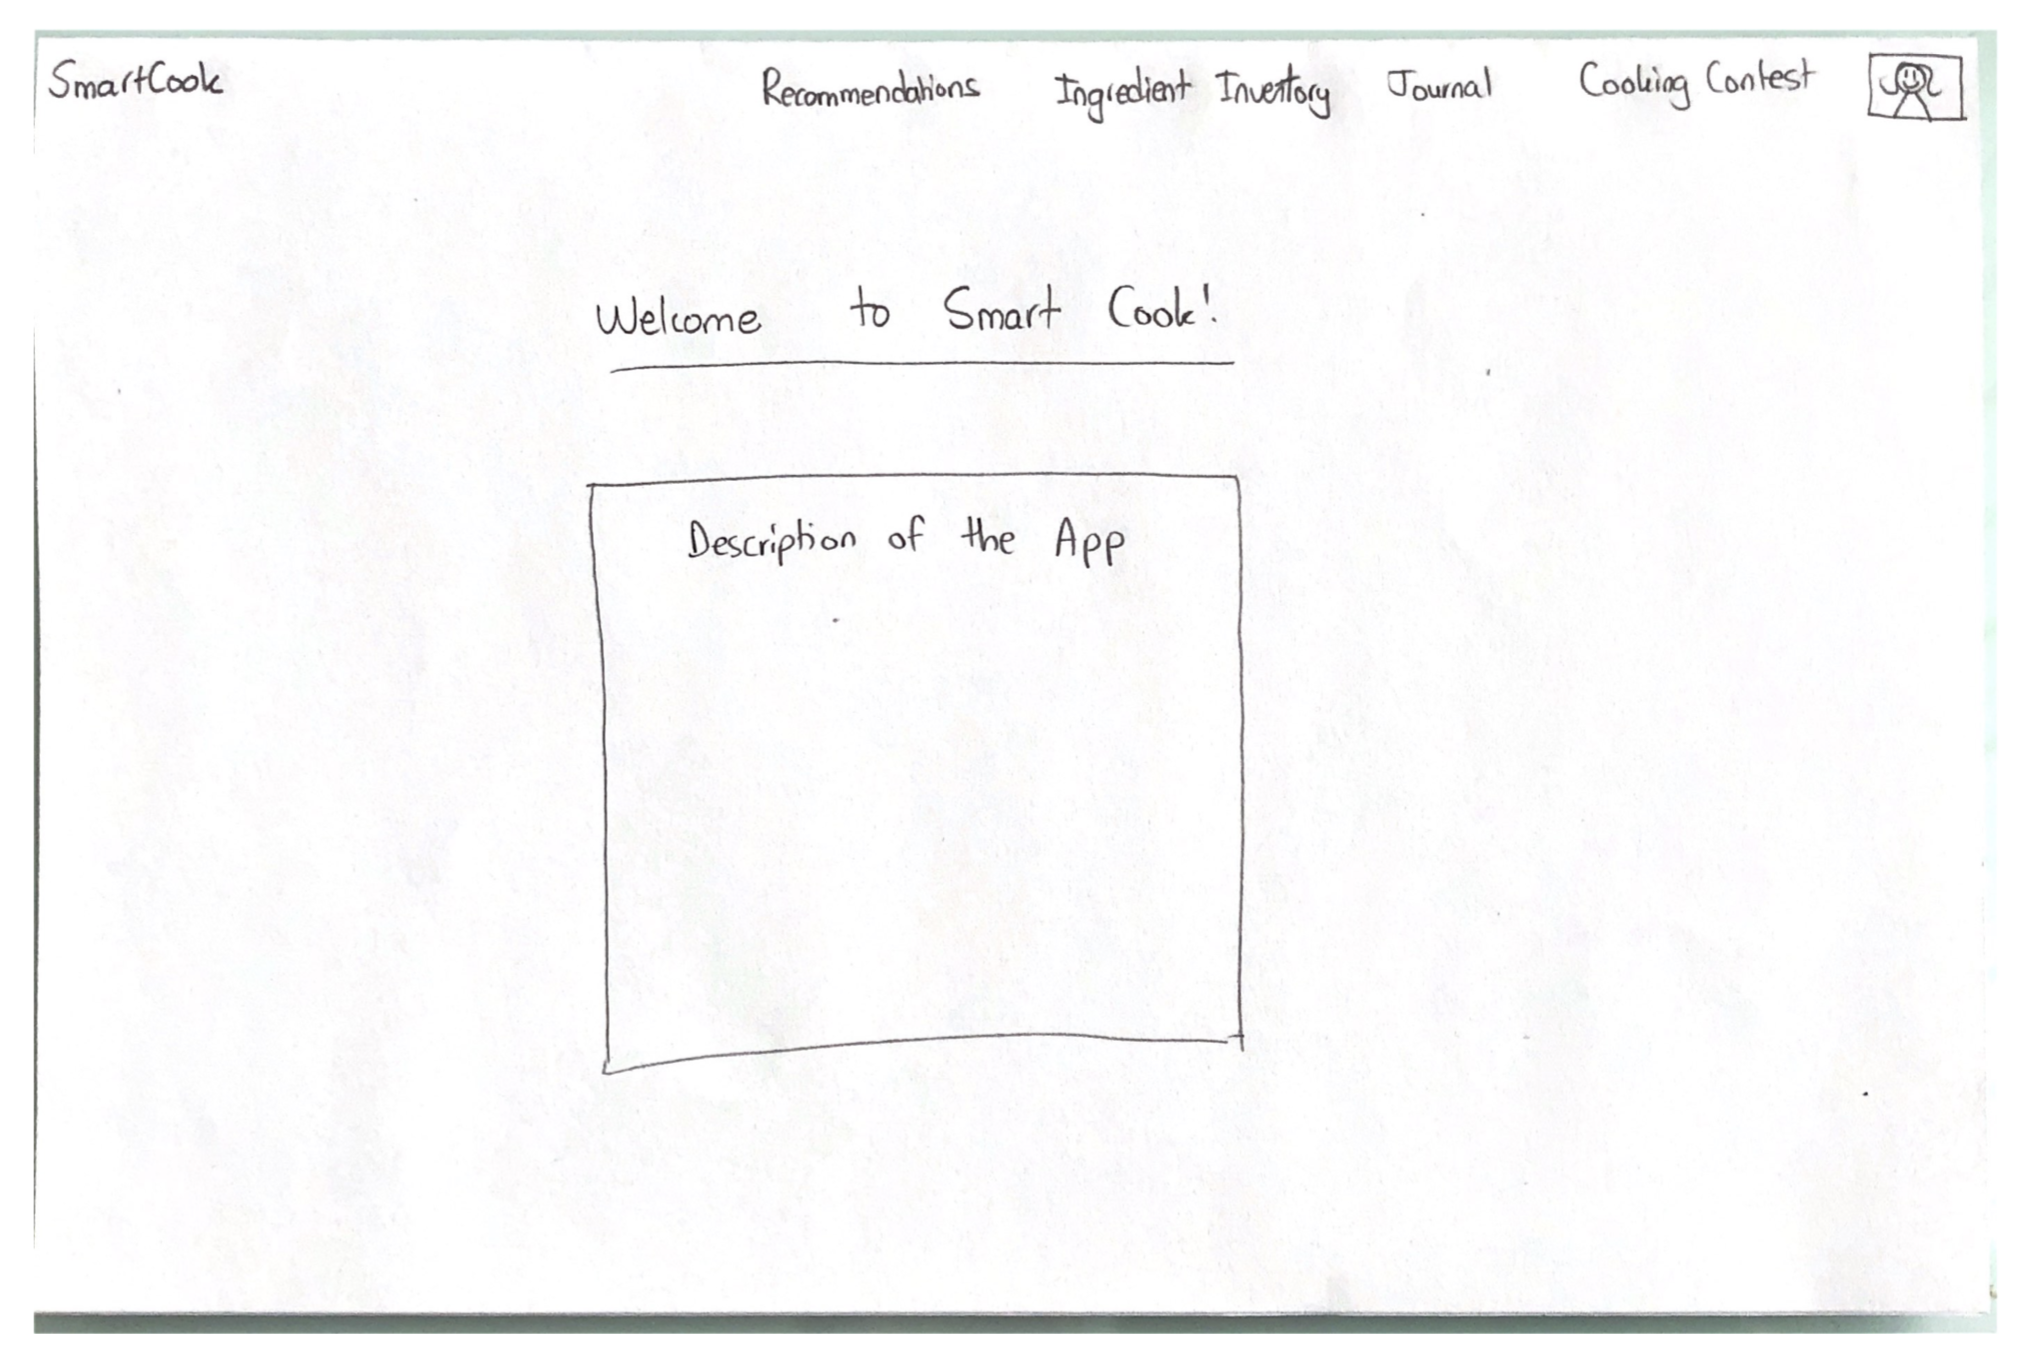 SmartCook Recommendations Ingredient Inventory Journal Cooking Contest
Welcome to Smart Cook!
Description of the App